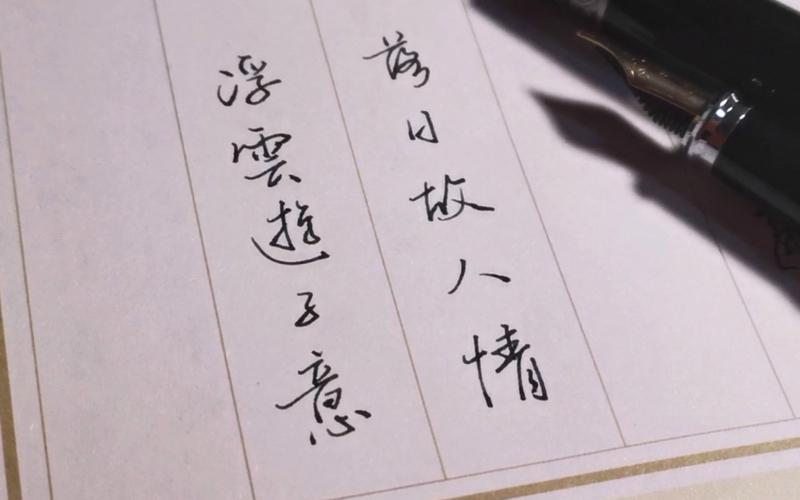 落日故人情
浮雲遊子意